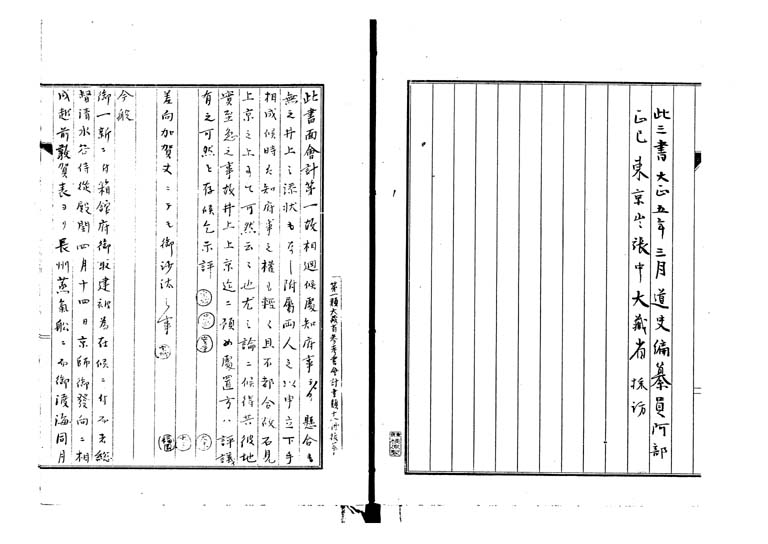 此三書大正五年三月道史編纂員阿部
正己東京出張中大蔵省採訪
此書面會計第一故相廻候處知府事ゟ懸合も
無之井上之深状も
附属両人之以申立下手
相成候時ハ知府事之権も軽く且不都合故石見
上京之上ニて可然云々也尤之論ニ候得共彼地
實至急之事故井上上京迄ニ預め處置方ハ評議
有之可然と存候乞示評
差向加賀丈ニ
御沙汰之事
今般
御一新ニ付箱館府御取建被為在候ニ付
総
督清水谷侍従殿閏四月十四日京師御發向ニ相
成越前敦賀表ヨリ長州蒸氣船ニ而御渡海同月